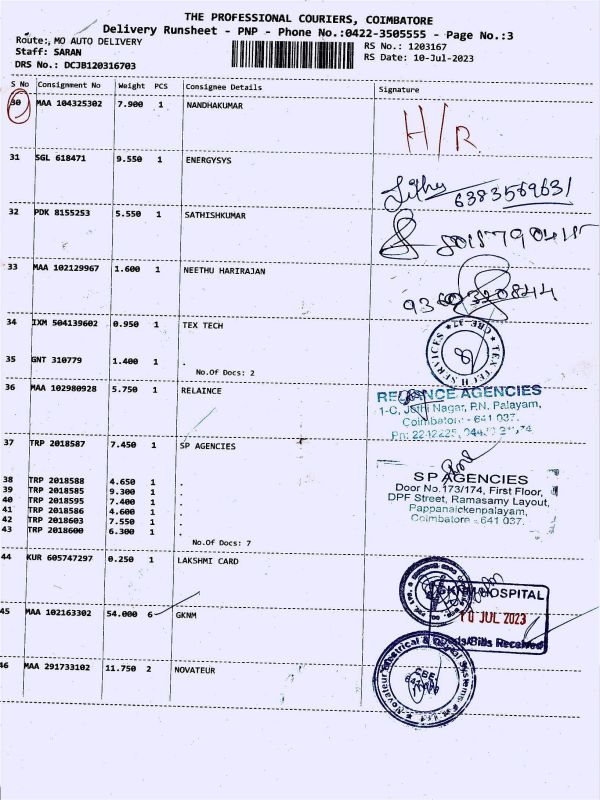 THE PROFESSIONAL COURIERS, COIMBATORE
Delivery Runsheet - PNP - Phone No.:0422-3505555 - Page No.:3
Route:, MO AUTO DELIVERY
Staff: SARAN
DRS No.: DCJB120316703
RS No.: 1203167
RS Date: 10-Jul-2023
S No Consignment No Weight PCS Consignee Details Signature
30 MAA 104325302 7.900 1 NANDHAKUMAR
H/R.
31 SGL 618471 9.550 1 ENERGYSYS
6383569631
32 PDK 8155253 5.550 1 SATHISHKUMAR
33 MAA 102129967 1.600 1 NEETHU HARIRAJAN
34 IXM 504139602 0.950 1 TEX TECH
TEX TECH SERVICES
CBE-37
35 GNT 310779 1.400 1 .
No.Of Docs: 2
36 MAA 102980928 5.750 1 RELAINCE
RELIANCE AGENCIES
1-C, Jothi Nagar, P.N. Palayam,
Coimbatore - 641 037.
37 TRP 2018587 7.450 1 SP AGENCIES
38 TRP 2018588 4.650 1 .
39 TRP 2018585 9.300 1 .
40 TRP 2018595 7.400 1 .
41 TRP 2018586 4.600 1 .
42 TRP 2018603 7.550 1 .
43 TRP 2018600 6.300 1 .
No.Of Docs: 7
SP AGENCIES
Door No.173/174, First Floor,
DPF Street, Ramasamy Layout,
Pappanaickenpalayam,
Coimbatore - 641 037.
44 KUR 605747297 0.250 1 LAKSHMI CARD
45 MAA 102163302 54.000 6 GKNM
GKNM HOSPITAL
10 JUL 2023
Goods/Bills Received
46 MAA 291733102 11.750 2 NOVATEUR